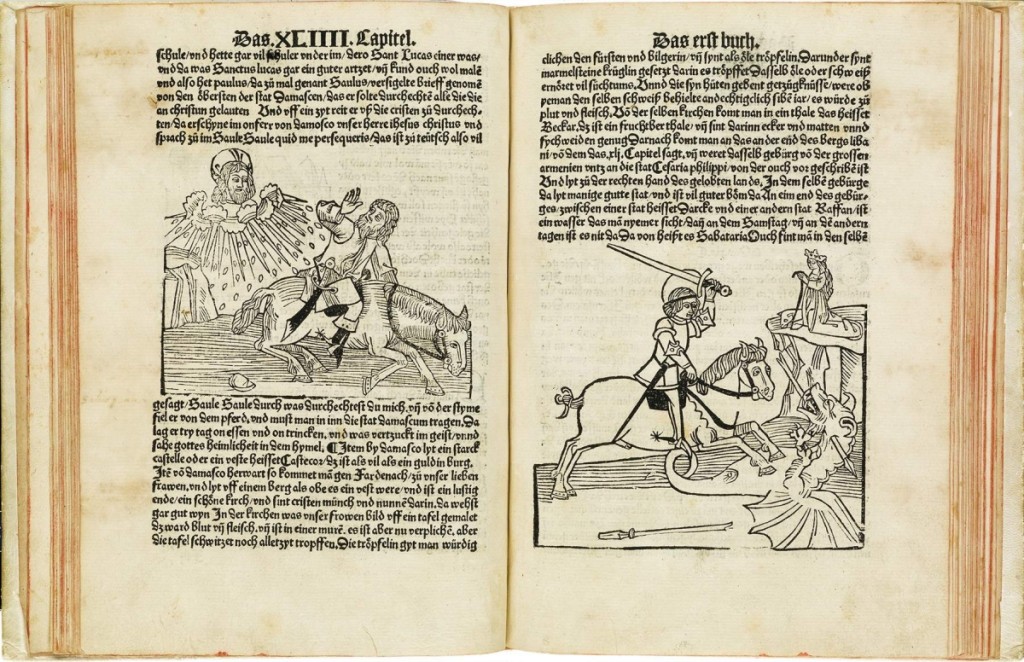 Das. XLIIII. Capitel.
schule/vnd hette gar vil schuler vnder im/dero Sant Lucas einer was/
vnd da was Sanctus lucas gar ein guter artzet/vñ kund ouch wol malē
vnd also het paulus/da zů mal genant Saulus/versigelte brieff genomē
von den obersten der stat Damascen/das er solte durchechtē alle die die
an christum gelauten Vnd vff ein zyt reit er vß die cristen zů durchech-
ten/da erschyne im onferr von damosco vnser herre ihesus christus vnd
sprach zů im Saule Saule quid me persequeris/das ist zů teütsch also vil
gesagt/Saule Saule durch was durchechtest du mich, vñ vō der styme
fiel er von dem pferd, vnd must man in inn die stat damascum tragen, Da
lag er try tag on essen vnd on trincken, vnd was vertzuckt im geist/vnnd
sahe gottes heimlicheit in dem hymel, ¶ Item by damasco lyt ein starck
castelle oder ein veste heisset Castecor/dz ist als vil als ein guldin burg,
Itē vō damasco herwart so kommet mā gen Fardenach/zů vnser lieben
frawen, vnd lyt vff einem berg als obe es ein vest were/vnd ist ein lustig
ende/ein schöne kirch/vnd sint cristen münch vnd nunnē darin, da wehst
gar gut wyn In der kirchen was vnser frowen bild vff ein tafel gemalet
dz ward blut vñ fleisch, vñ ist in einer murē, es ist aber nu verplichē, aber
die tafel schwitzet noch alletzyt tropffen, Die tröpfelin gyt man würdig
Das erst buch.
clichen den fürsten vnd bilgerin/vñ synt als öle tröpfelin, Darunder synt
marmelsteine krüglin gesetzt darin es tröpffet Dasselb öle oder schweiß
ernöret vil süchtums, Vnnd die syn hüten gebent getzügknüsse/were ob
yeman den selben schweiß behielte andechtiglich sibē iar/es würde zů
plut vnd fleisch, Vō der selben kirchen komt man in ein thale das heisset
Beckar, dz ist ein fruchtber thale/vñ sint darinn ecker vnd matten vnnd
fychweiden genug Darnach komt man an das ander end des bergs liba
ni/vō dem das, xlj, Capitel sagt, vñ weret dasselb gebürg vō der grossen
armenien vntz an die stat Cesaria philippi/von der ouch vor geschribē ist
Vnd lyt zů der rechten hand des gelobten lands, In dem selbē gebürge
da lyt manige gutte stat/vnd ist vil guter böm da An eim end des gebür-
ges/zwischen einer stat heisset Darcke vnd einer andern stat Raffan/ist
ein wasser das mā nyemer sicht/dañ an dem Samstag/vñ an dē andern
tagen ist es nit da Da von heißt es Sabataria Ouch fint mā in den selbē